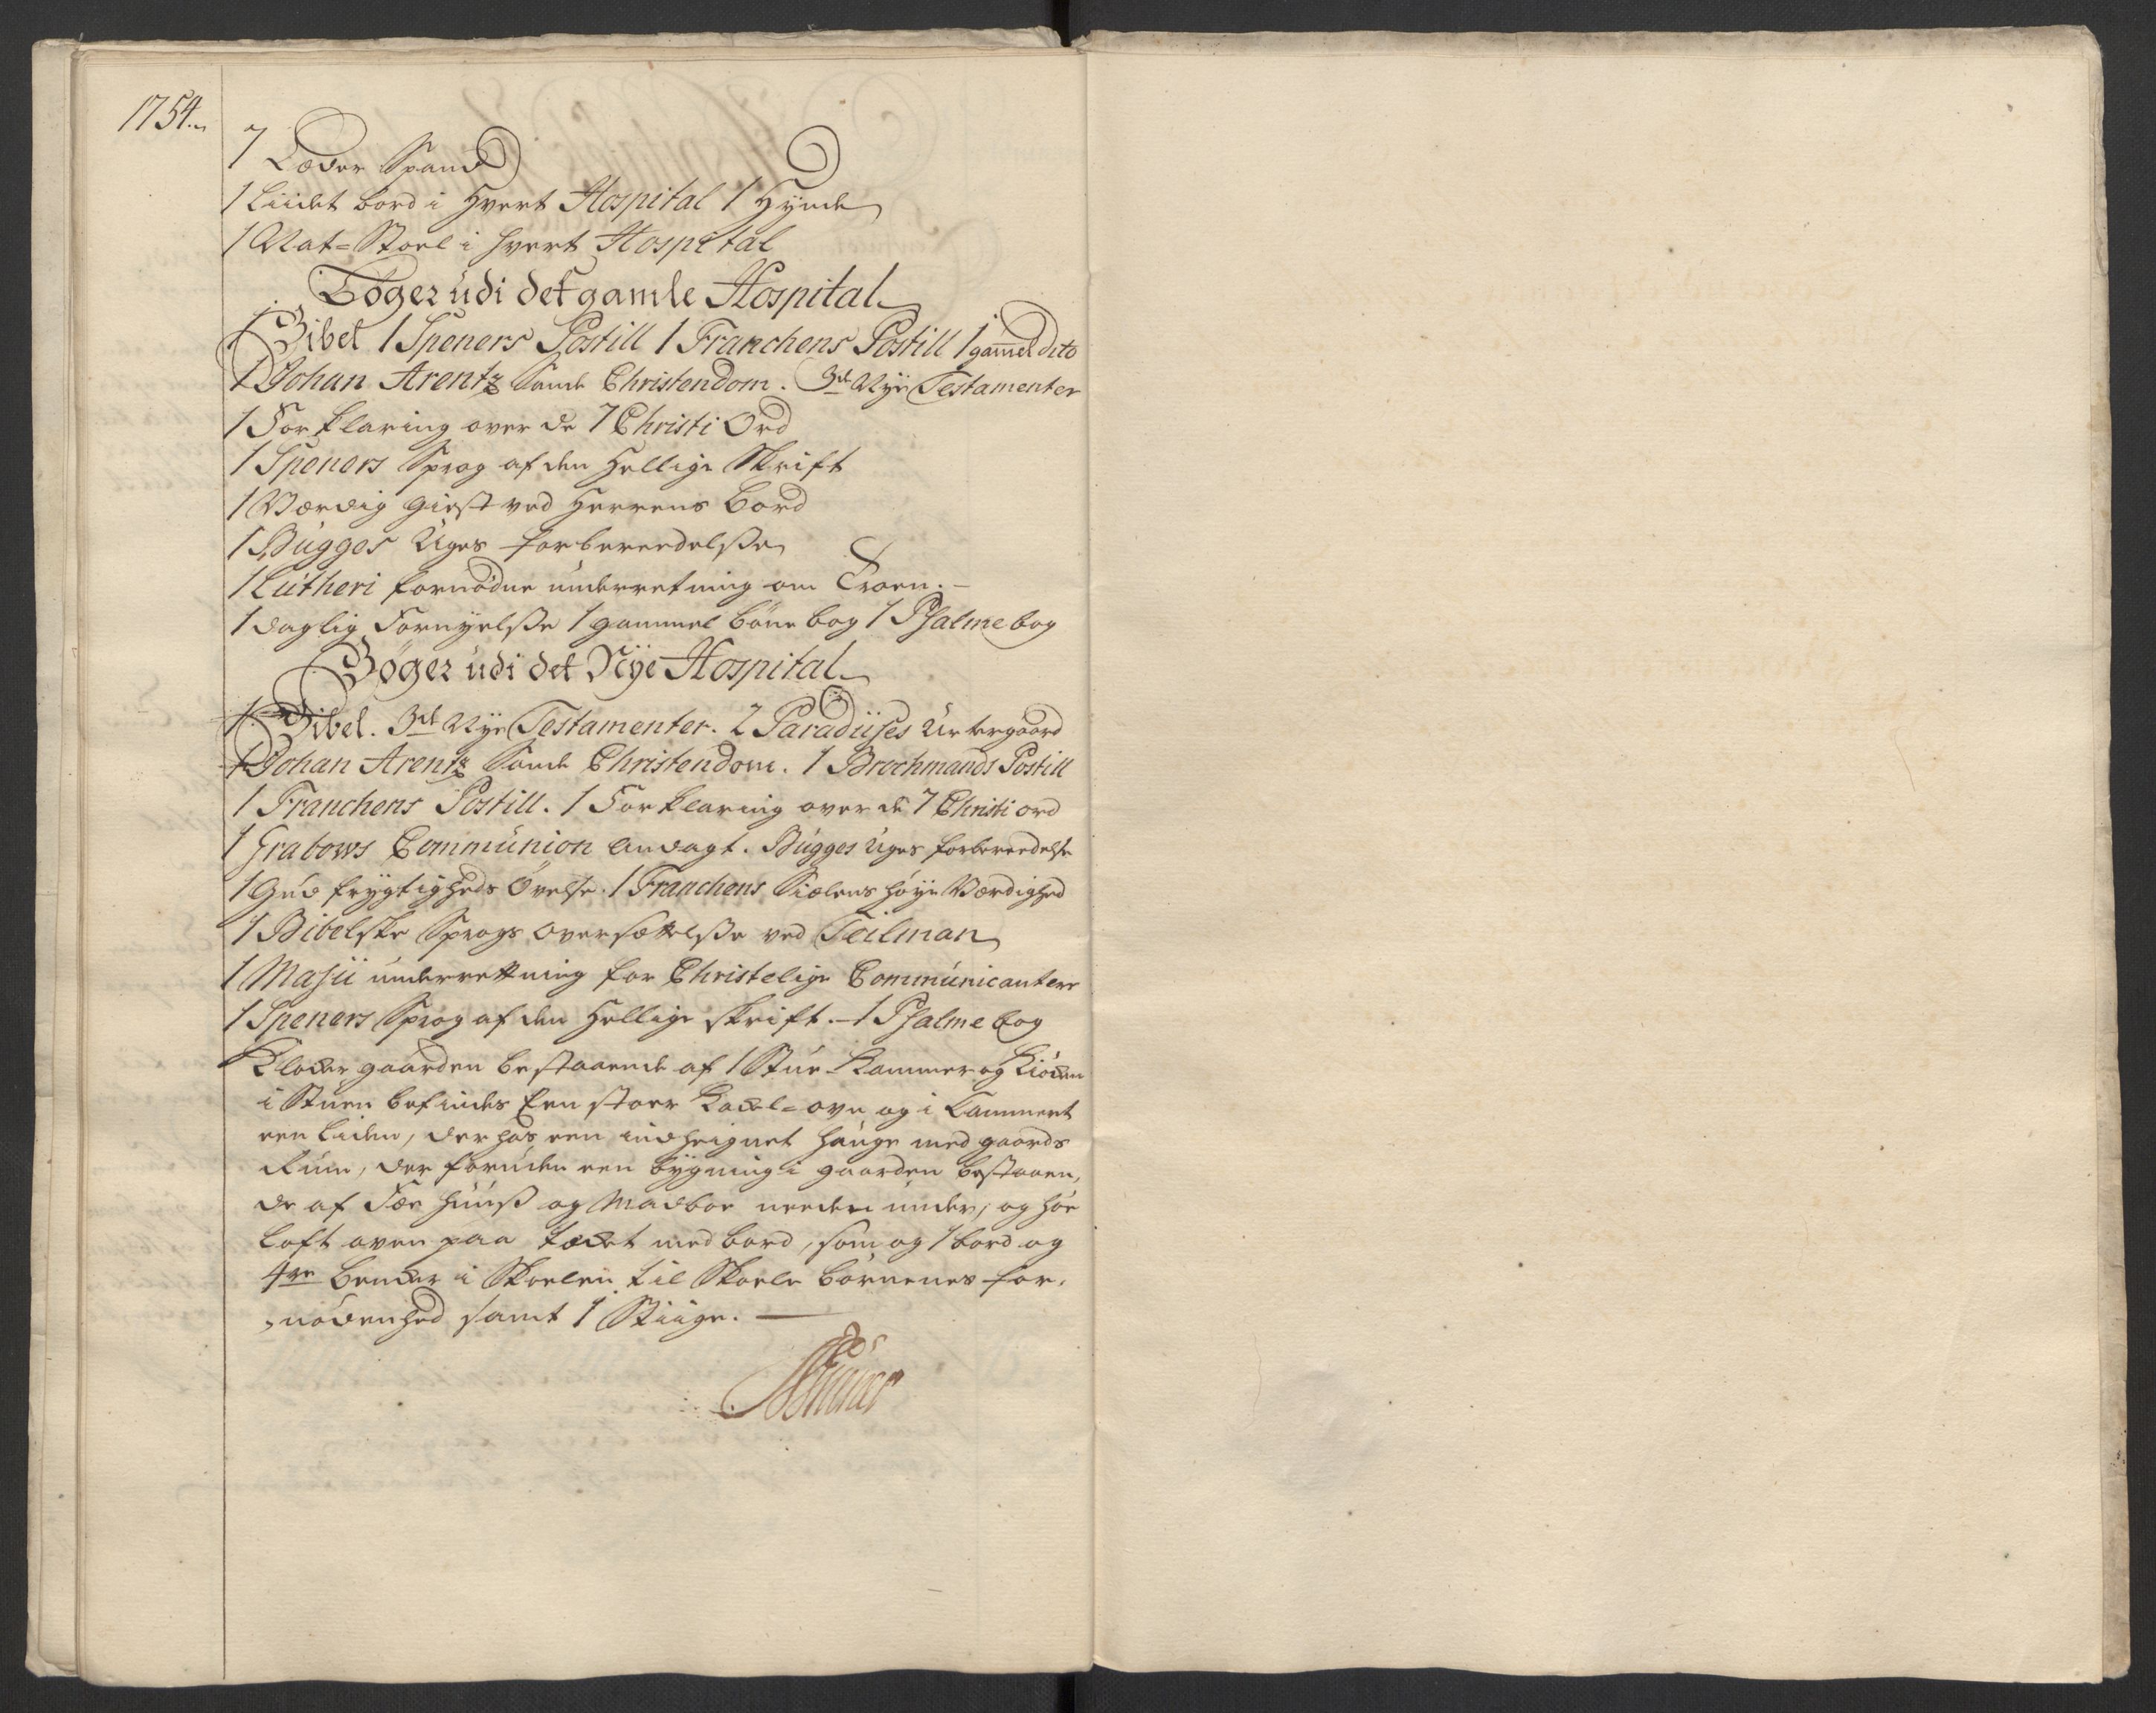 1754.
7 Læder Spand
1 Liidet bord i hvert Hospital 1 Hynde
1 Nat-Stoel i hvert Hospital
Bøger udi det gamle Hospital
1 Bibel 1 Speners Postill 1 Franchens Postill 1 gam̄el dito
1 Johan Arentz Sande Christendom. 3de Nye Testamenter
1 Forklaring over de 7 Christi Ord
1 Speners Sprog af den Hellige Skrift
1 Værdig Giest ved Herrens Bord
1 Bugges Uges forbereedelsse
1 Lutheri fornødne underretning om Troen.
1 daglig Fornyelsse 1 gammel bønebog 1 Psalmebog
Bøger udi det Nye Hospital
1 Bibel. 3de Nye Testamenter. 2 Paradiises Urtegaard
1 Johan Arentz Sande Christendom. 1 Brochmands Postill
1 Franchens Postill. 1 Forklaring over de 7 Christi ord
1 Grabows Communion Andagt. Bugges Uges forbereedelse
1 Gudfrygtigheds Øvelse. 1 Franchens Siælens høye Værdighed
1 Bibelske Sprogs oversættelsse ved Teilman
1 Masii underretning for Christelige Communicantere
1 Speners Sprog af den Hellige skrift. 1 Psalmebog
gaarden bestaaende af 1 Stue Kammer og Kiøcken
i Stuen befindes Een stoer Kackel-ovn og i Kammeret
een liden, der hos een indheignet Hauge med gaards
Rum, der foruden een bygning i gaarden bestaaen,
de af Fæe huuss og Madboe needen under, og høe
loft oven paa tæcket med bord, som og 1 bord og
4re bencker i Skoelen til Skoele børnenes for,
nødenhed samt 1 Stiige.